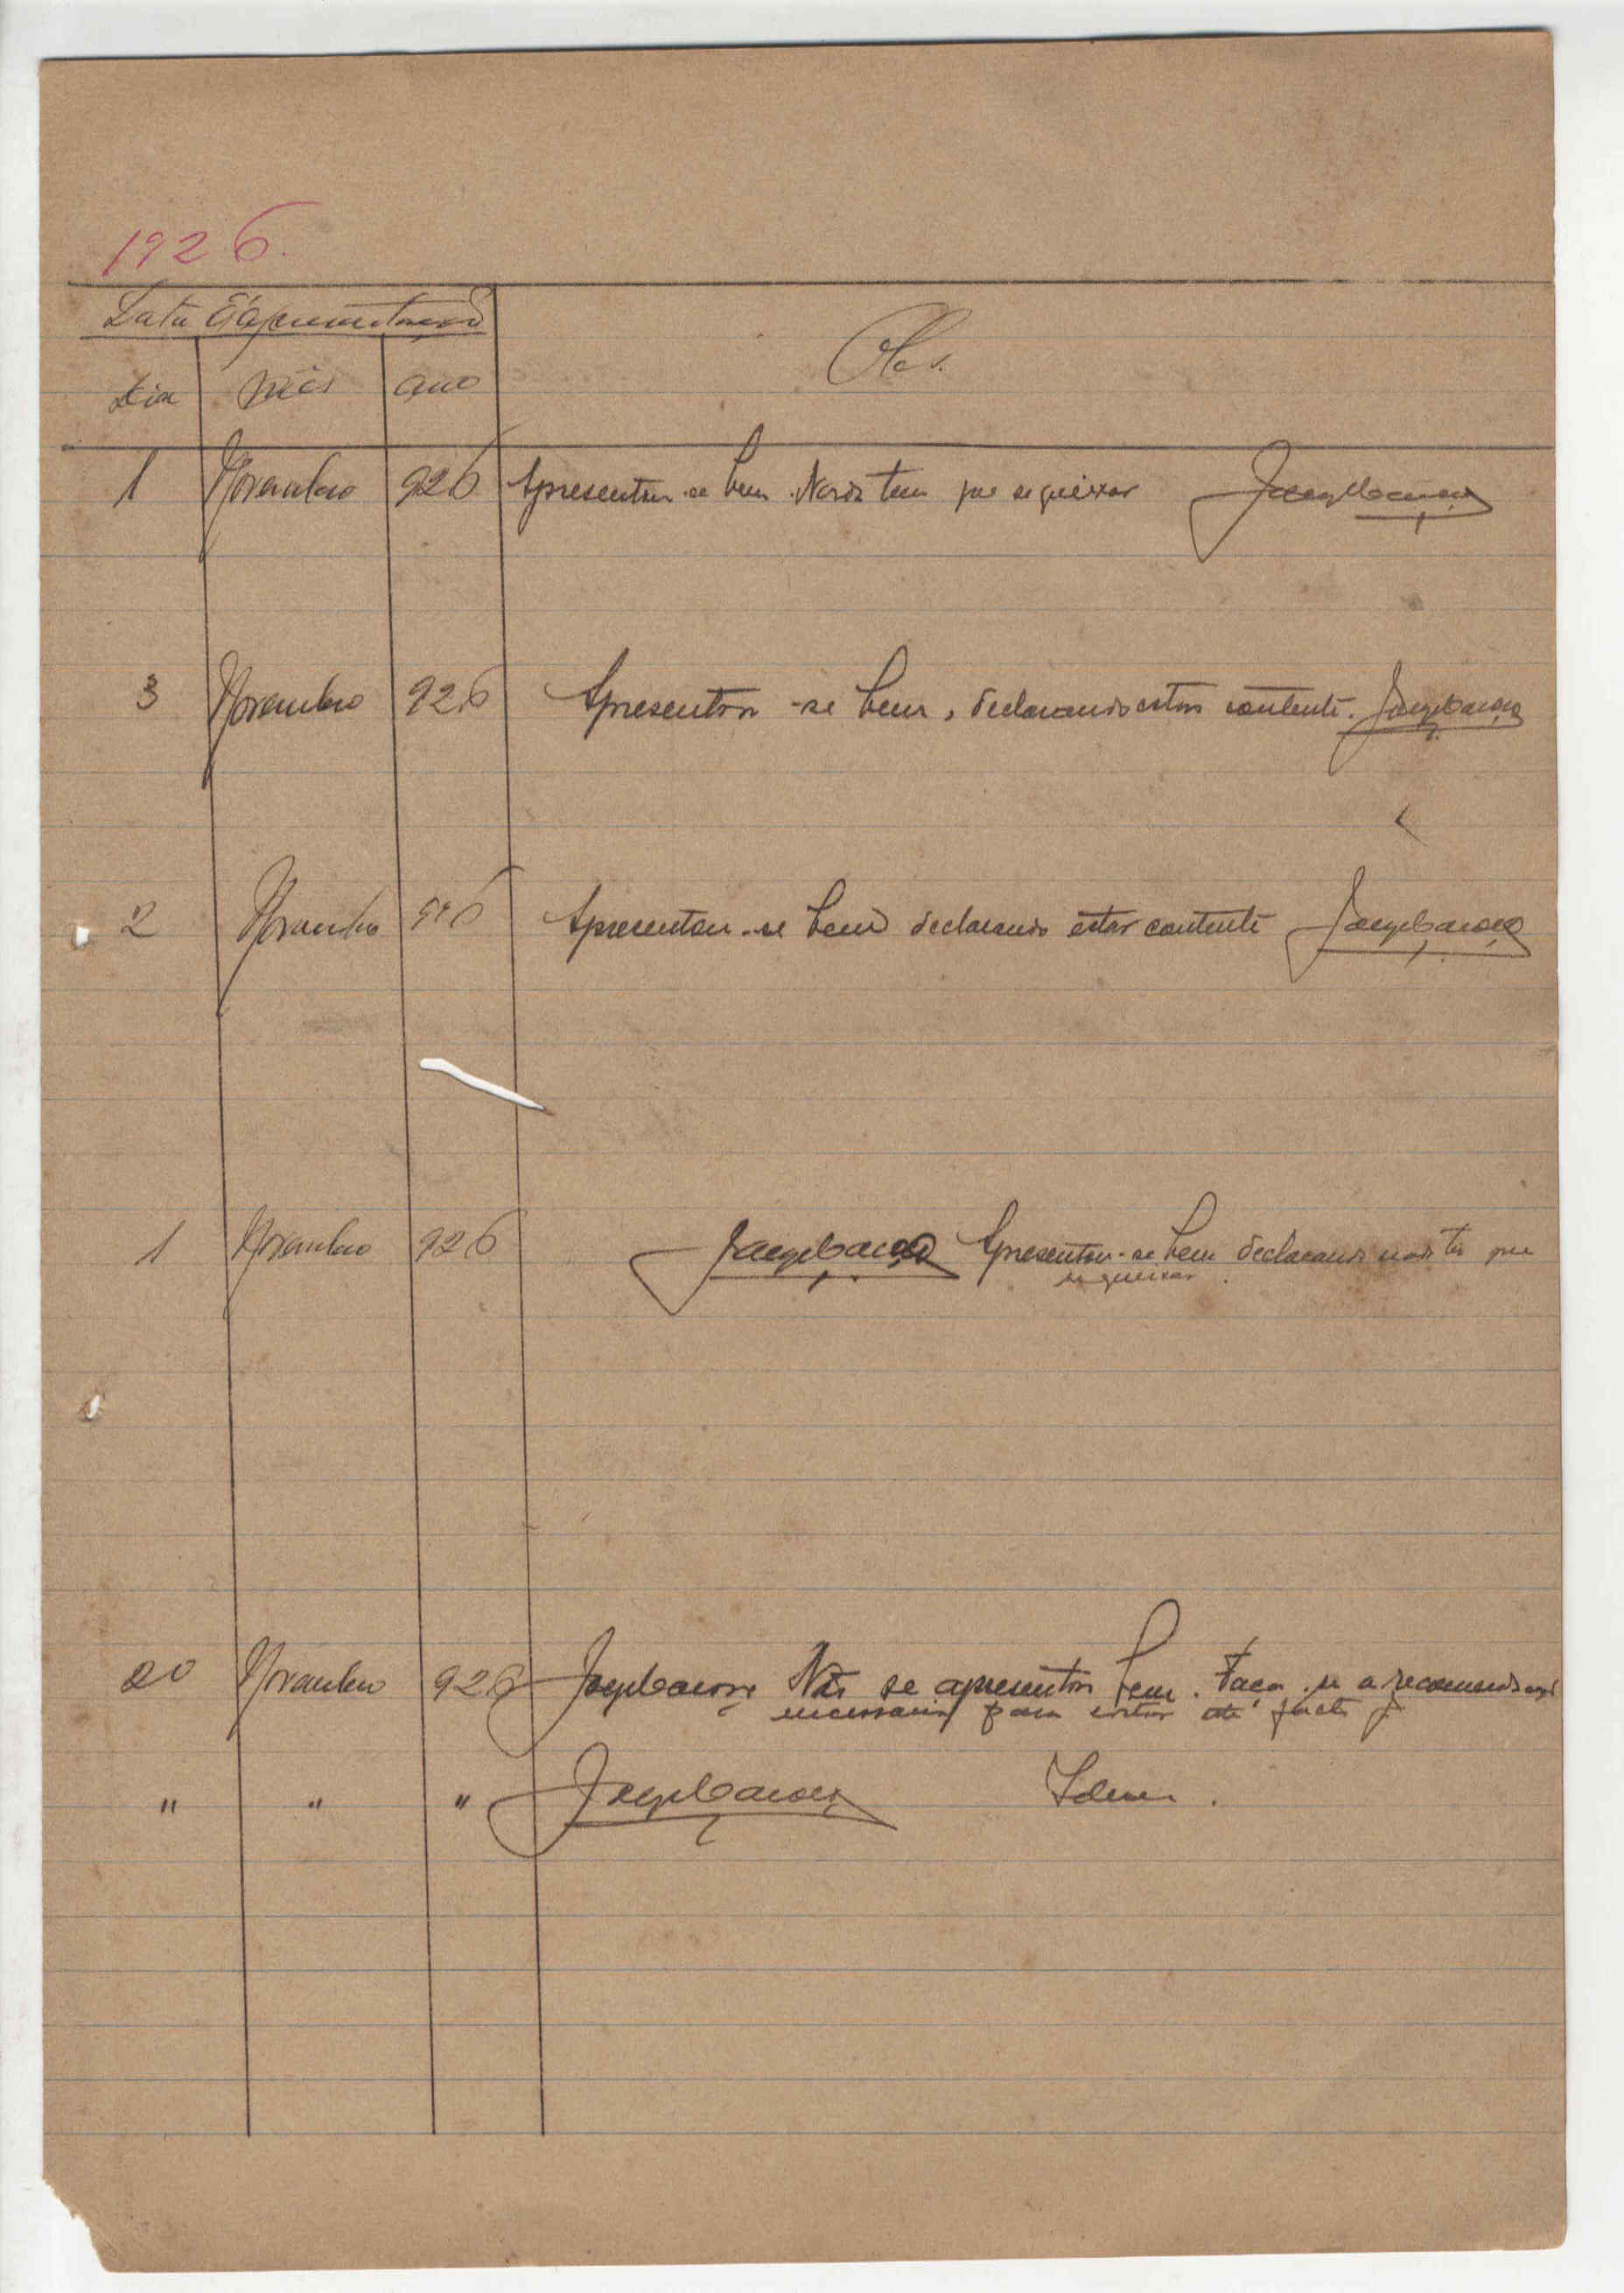 1926.
Data d'apresentação
Obs.
dia mês ano
1 Novembro 926 Apresentou-se bem. Nada tem que se queixar
3 Novembro 926 Apresentou-se bem, declarando estar contente.
2 Novembro 926 Apresentou-se bem declarando estar contente
1 Novembro 926 Apresentou-se bem declarando nada ter que
se queixar.
20 Novembro 926 Não se apresentou bem. Faça-se a recomendação
necessaria para evitar este facto
" " " Idem.